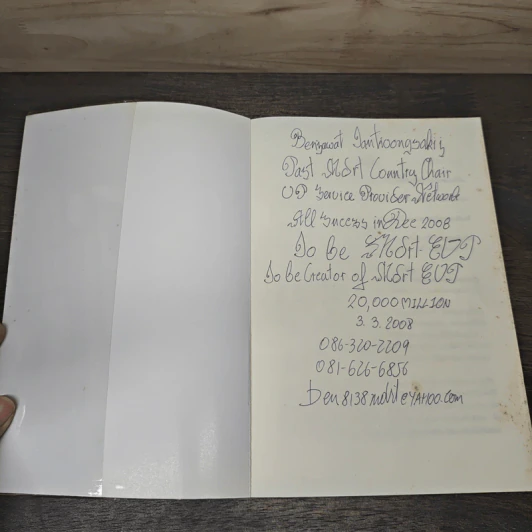 Past Mdrt Country Chair
VP Service Provider Network
All Success in Dec 2008
To be Mdrt EVP
To be Creator of Mdrt EVP
20,000 MILLION
3.3.2008
086-320-2209
081-626-6856
Ben8138mdrt@YAHOO.COM